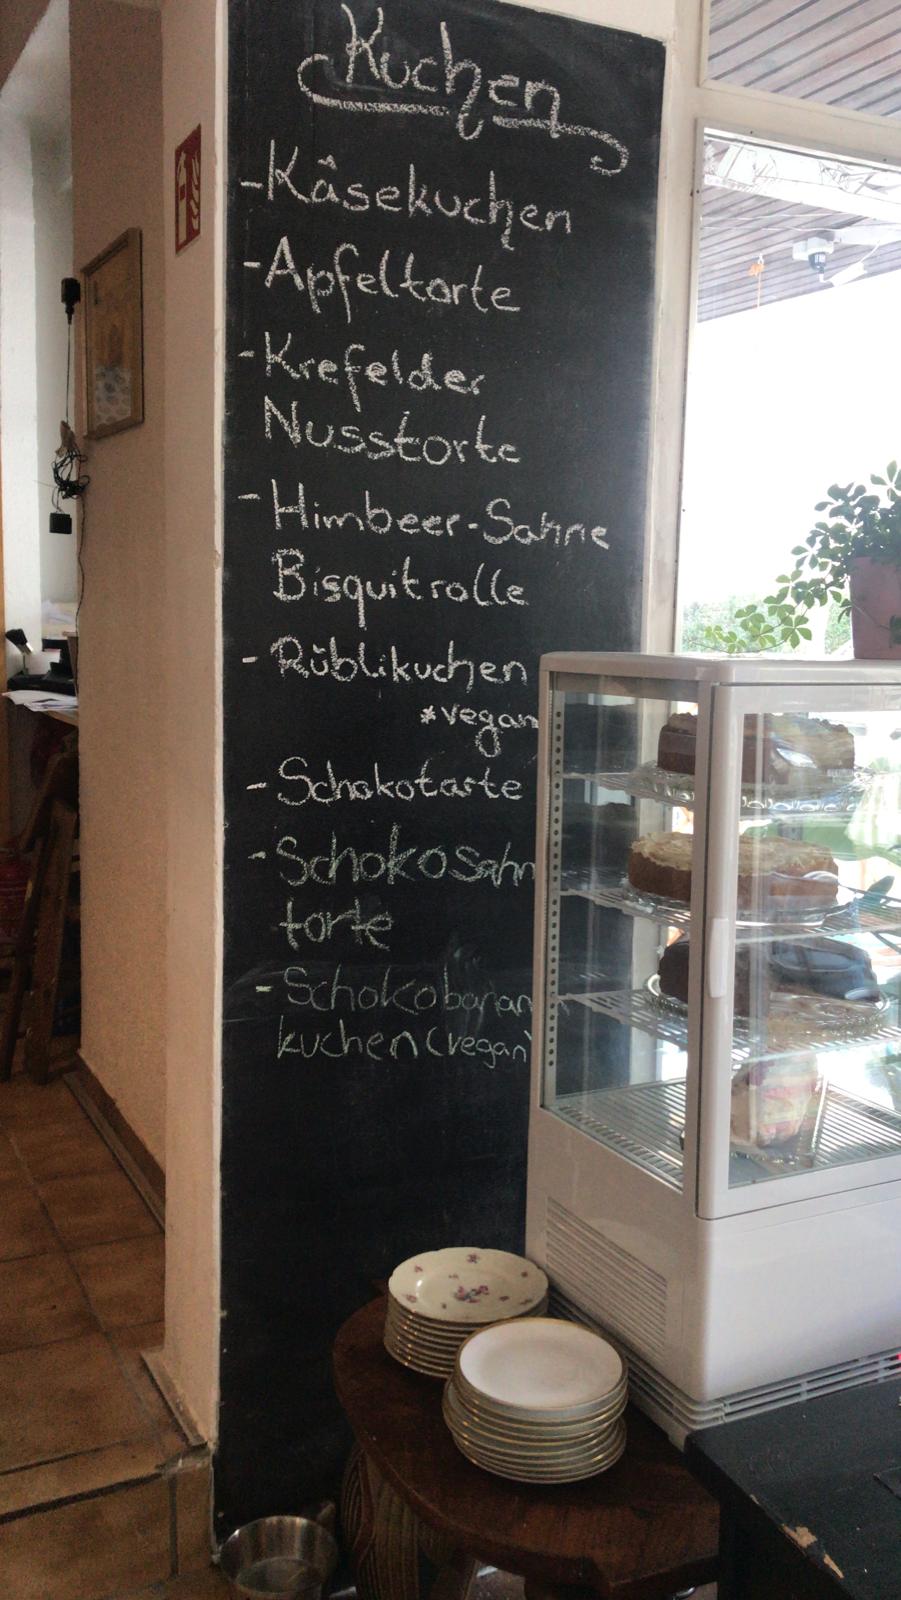 Kuchen
-Käsekuchen
-Apfeltorte
-Krefelder
Nusstorte
-Himbeer-Sahne
Bisquitrolle
-Rüblikuchen
*vegan
-Schokotarte
-Schokosahn
torte
-Schokobanan
kuchen(vegan)